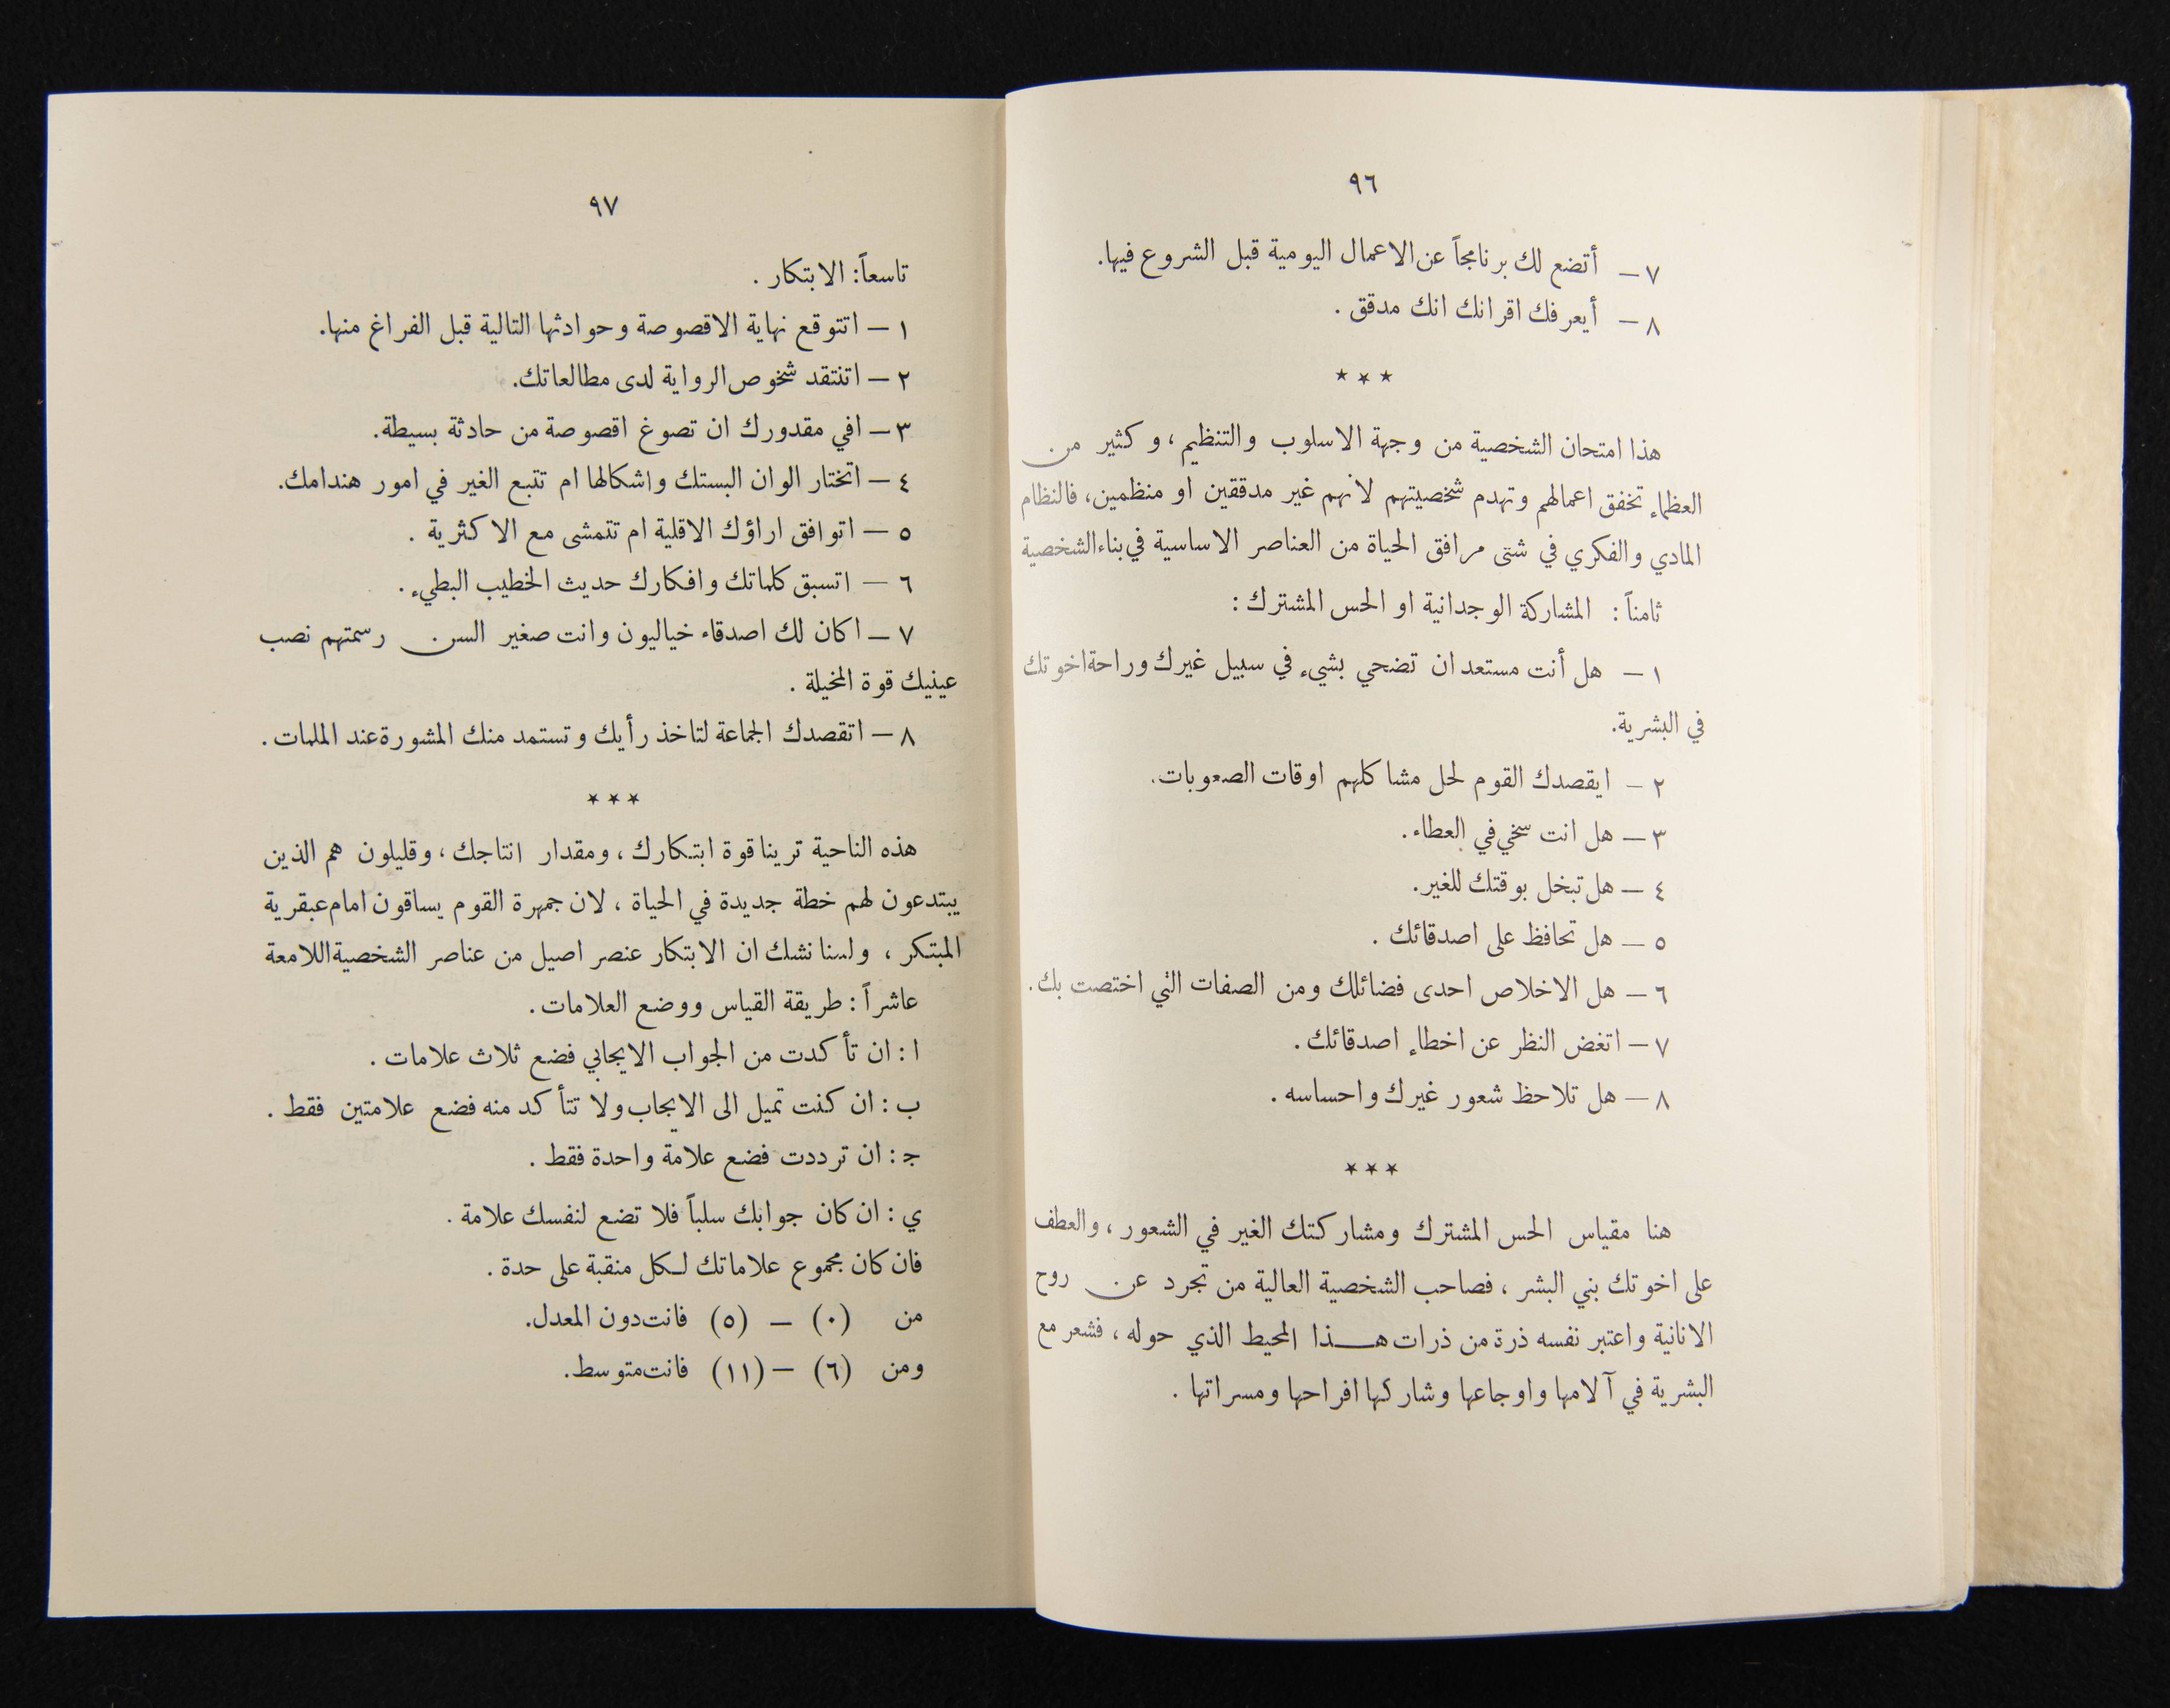 ٩٦
٧ — أتضع لك برنامجاً عن الاعمال اليومية قبل الشروع فيها.
٨ — أيعرفك اقرانك انك مدقق .
٭ ٭ ٭
هذا امتحان الشخصية من وجهة الاسلوب والتنظيم ، وكثير من
العظماء تخفق اعمالهم وتهدم شخصيتهم لانهم غير مدققين او منظمين، فالنظام
المادي والفكري في شتى مرافق الحياة من العناصر الاساسية في بناء الشخصية
ثامناً : المشاركة الوجدانية او الحس المشترك :
١ — هل أنت مستعد ان تضحي بشيء في سبيل غيرك وراحة اخوتك
في البشرية.
٢ — ايقصدك القوم لحل مشاكلهم اوقات الصعوبات.
٣ — هل انت سخي في العطاء .
٤ — هل تبخل بوقتك للغير.
٥ — هل تحافظ على اصدقائك .
٦ — هل الاخلاص احدى فضائلك ومن الصفات التي اختصت بك .
٧ — اتغض النظر عن اخطاء اصدقائك .
٨ — هل تلاحظ شعور غيرك واحساسه .
٭ ٭ ٭
هنا مقياس الحس المشترك ومشاركتك الغير في الشعور ، والعطف
على اخوتك بني البشر ، فصاحب الشخصية العالية من تجرد عن روح
الانانية واعتبر نفسه ذرة من ذرات هذا المحيط الذي حوله ، فشعر مع
البشرية في آلامها واوجاعها وشاركها افراحها ومسراتها .
٩٧
تاسعاً: الابتكار .
١ — اتتوقع نهاية الاقصوصة وحوادثها التالية قبل الفراغ منها.
٢ — اتنتقد شخوص الرواية لدى مطالعاتك.
٣ — افي مقدورك ان تصوغ اقصوصة من حادثة بسيطة.
٤ — اتختار الوان البستك واشكالها ام تتبع الغير في امور هندامك.
٥ — اتوافق اراؤك الاقلية ام تتمشى مع الاكثرية .
٦ — اتسبق كلماتك وافكارك حديث الخطيب البطيء .
٧ — اكان لك اصدقاء خياليون وانت صغير السن رسمتهم نصب
عينيك قوة المخيلة .
٨ — اتقصدك الجماعة لتاخذ رأيك وتستمد منك المشورة عند الملمات .
٭ ٭ ٭
هذه الناحية ترينا قوة ابتكارك ، ومقدار انتاجك ، وقليلون هم الذين
يبتدعون لهم خطة جديدة في الحياة ، لان جمهرة القوم يساقون امام عبقرية
المبتكر ، ولسنا نشك ان الابتكار عنصر اصيل من عناصر الشخصية اللامعة
عاشراً : طريقة القياس ووضع العلامات .
ا : ان تأكدت من الجواب الايجابي فضع ثلاث علامات .
ب : ان كنت تميل الى الايجاب ولا تتأكد منه فضع علامتين فقط .
ج : ان ترددت فضع علامة واحدة فقط .
ي : ان كان جوابك سلباً فلا تضع لنفسك علامة .
فان كان مجموع علاماتك لكل منقبة على حدة .
من (٠) — (٥) فانت دون المعدل.
ومن (٦) — (١١) فانت متوسط.